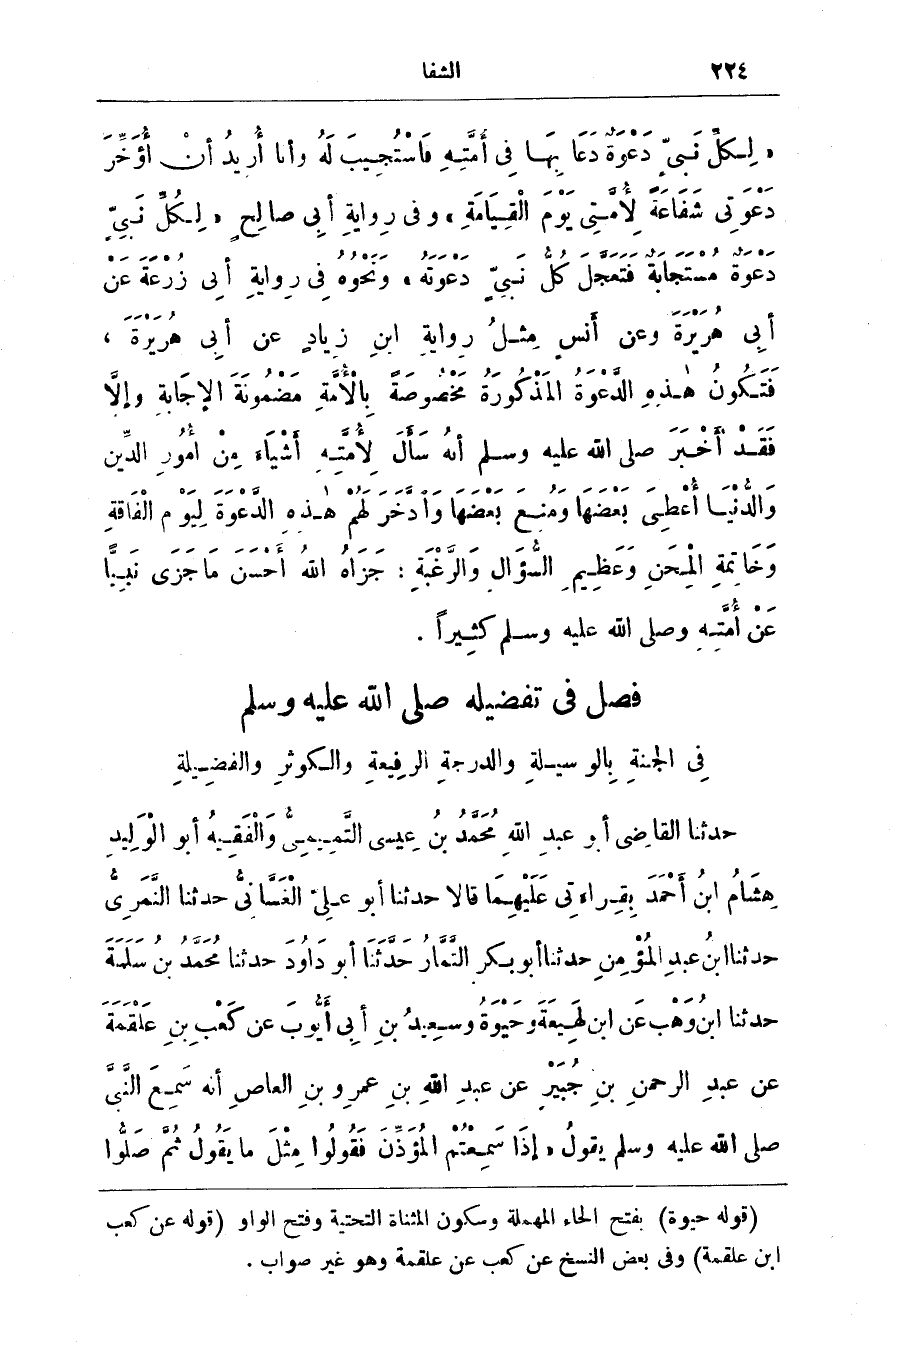 ٢٢٤ الشفا
« لِكُلِّ نَبِيٍّ دَعْوَةٌ دَعَا بِهَا فِى أُمَّتِهِ فَاسْتُجِيبَ لَهُ وأنا أُرِيدُ أنْ أُؤَخِّرَ
دَعْوَتِى شَفَاعَةً لِأُمَّتِى يَوْمَ الْقِيَامَةِ » وفى رِوايةِ أبِى صالِحٍ « لِكُلِّ نَبِيٍّ
دَعْوَةٌ مُسْتَجَابَةٌ فَتَعَجَّلَ كُلُّ نَبِيٍّ دَعْوتَهُ » وَنَحْوُهُ فِى رِوايةِ أبِى زُرْعَةَ عَنْ
أبِى هُرَيْرَةَ وعن أَنَسٍ مِثْلُ رِوايةِ ابنِ زِيادٍ عن أبِى هُرَيْرَةَ ،
فَتَكُونُ هٰذِهِ الدَّعْوَةُ المَذْكُورَةُ مَخْصُوصَةً بِالْأُمَّةِ مَضْمُونَةَ الإجَابةِ وإلَّا
فَقَدْ أَخْبَرَ صلى الله عليه وسلم أنهُ سَأَلَ لِأُمَّتِهِ أَشْيَاءَ مِنْ أُمُورِ الدِّينِ
وَالدُّنْيَا أُعْطِىَ بَعْضَهَا وَمُنِعَ بَعْضَهَا وَادَّخَرَ لَهُمْ هٰذِهِ الدَّعْوَةَ لِيَوْمِ الْفَاقَةِ
وَخَاتِمَةِ الْمِحَنِ وَعَظِيمِ السُّؤَالِ وَالرَّغْبَةِ : جَزَاهُ اللهُ أَحْسَنَ مَا جَزَى نَبِيًّا
عَنْ أُمَّتِهِ وصلى الله عليه وسلم كَثِيراً .
فصل فى تفضيله صلى الله عليه وسلم
فِى الجنةِ بِالوسيلةِ والدرجةِ الرفِيعةِ والكوثرِ والفضِيلةِ
حدثنا القاضِى أبو عبدِ اللهِ مُحَمَّدُ بنُ عِيسى التَّمِيمِىُّ وَالْفَقِيهُ أبو الْوَلِيدِ
هِشَامُ ابنُ أَحْمَدَ بِقِراءتِى عَلَيْهِمَا قالا حدثنا أبو علِيّ الْغَسَّانِىُّ حدثنا النَّمَرِىُّ
حدثنا ابنُ عبدِ الْمُؤْمِنِ حدثنا أبو بكرٍ التَّمَّارُ حَدَّثَنَا أبو دَاوُدَ حدثنا مُحَمَّدُ بنُ سَلَمَةَ
حدثنا ابنُ وَهْبٍ عَنِ ابنِ لَهِيعَةَ وَحَيْوَةُ وسعِيدُ بنِ أبِى أيُّوبَ عن كَعْبِ بنِ عَلْقَمَةَ
عن عبدِ الرحمنِ بنِ جُبَيْرٍ عن عبدِ اللهِ بنِ عمرِو بنِ العاصِ أنه سَمِعَ النَّبِىَّ
صلى الله عليه وسلم يقولُ « إذَا سَمِعْتُمُ الْمُؤَذِّنَ فَقُولُوا مِثْلَ ما يَقُولُ ثُمَّ صَلُّوا
(قوله حيوة) بفتح الحاء المهملة وسكون المثناة التحتية وفتح الواو (قوله عن كعب
ابن علقمة) وفى بعض النسخ عن كعب عن علقمة وهو غير صواب .